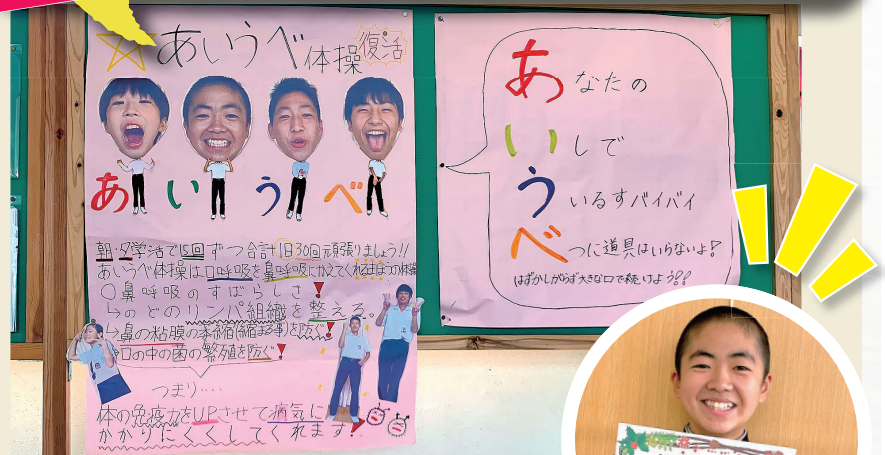 ☆あいうべ体操復活
あいうべ
朝・夕学活で15回ずつ合計1日30回頑張りましょう!!
あいうべ体操は口呼吸を鼻呼吸にかえてくれるまほうの体操
○鼻呼吸のすばらしさ!
↳のどのリンパ組織を整える。
↳鼻の粘膜の萎縮(縮まる事)を防ぐ!
口の中の菌の繁殖を防ぐ!
つまり…
体の免疫力をUPさせて病気に
かかりにくくしてくれます!
あなたの
いしで
ういるすバイバイ
べつに道具はいらないよ!?
はずかしがらず大きな口で続けよう!!